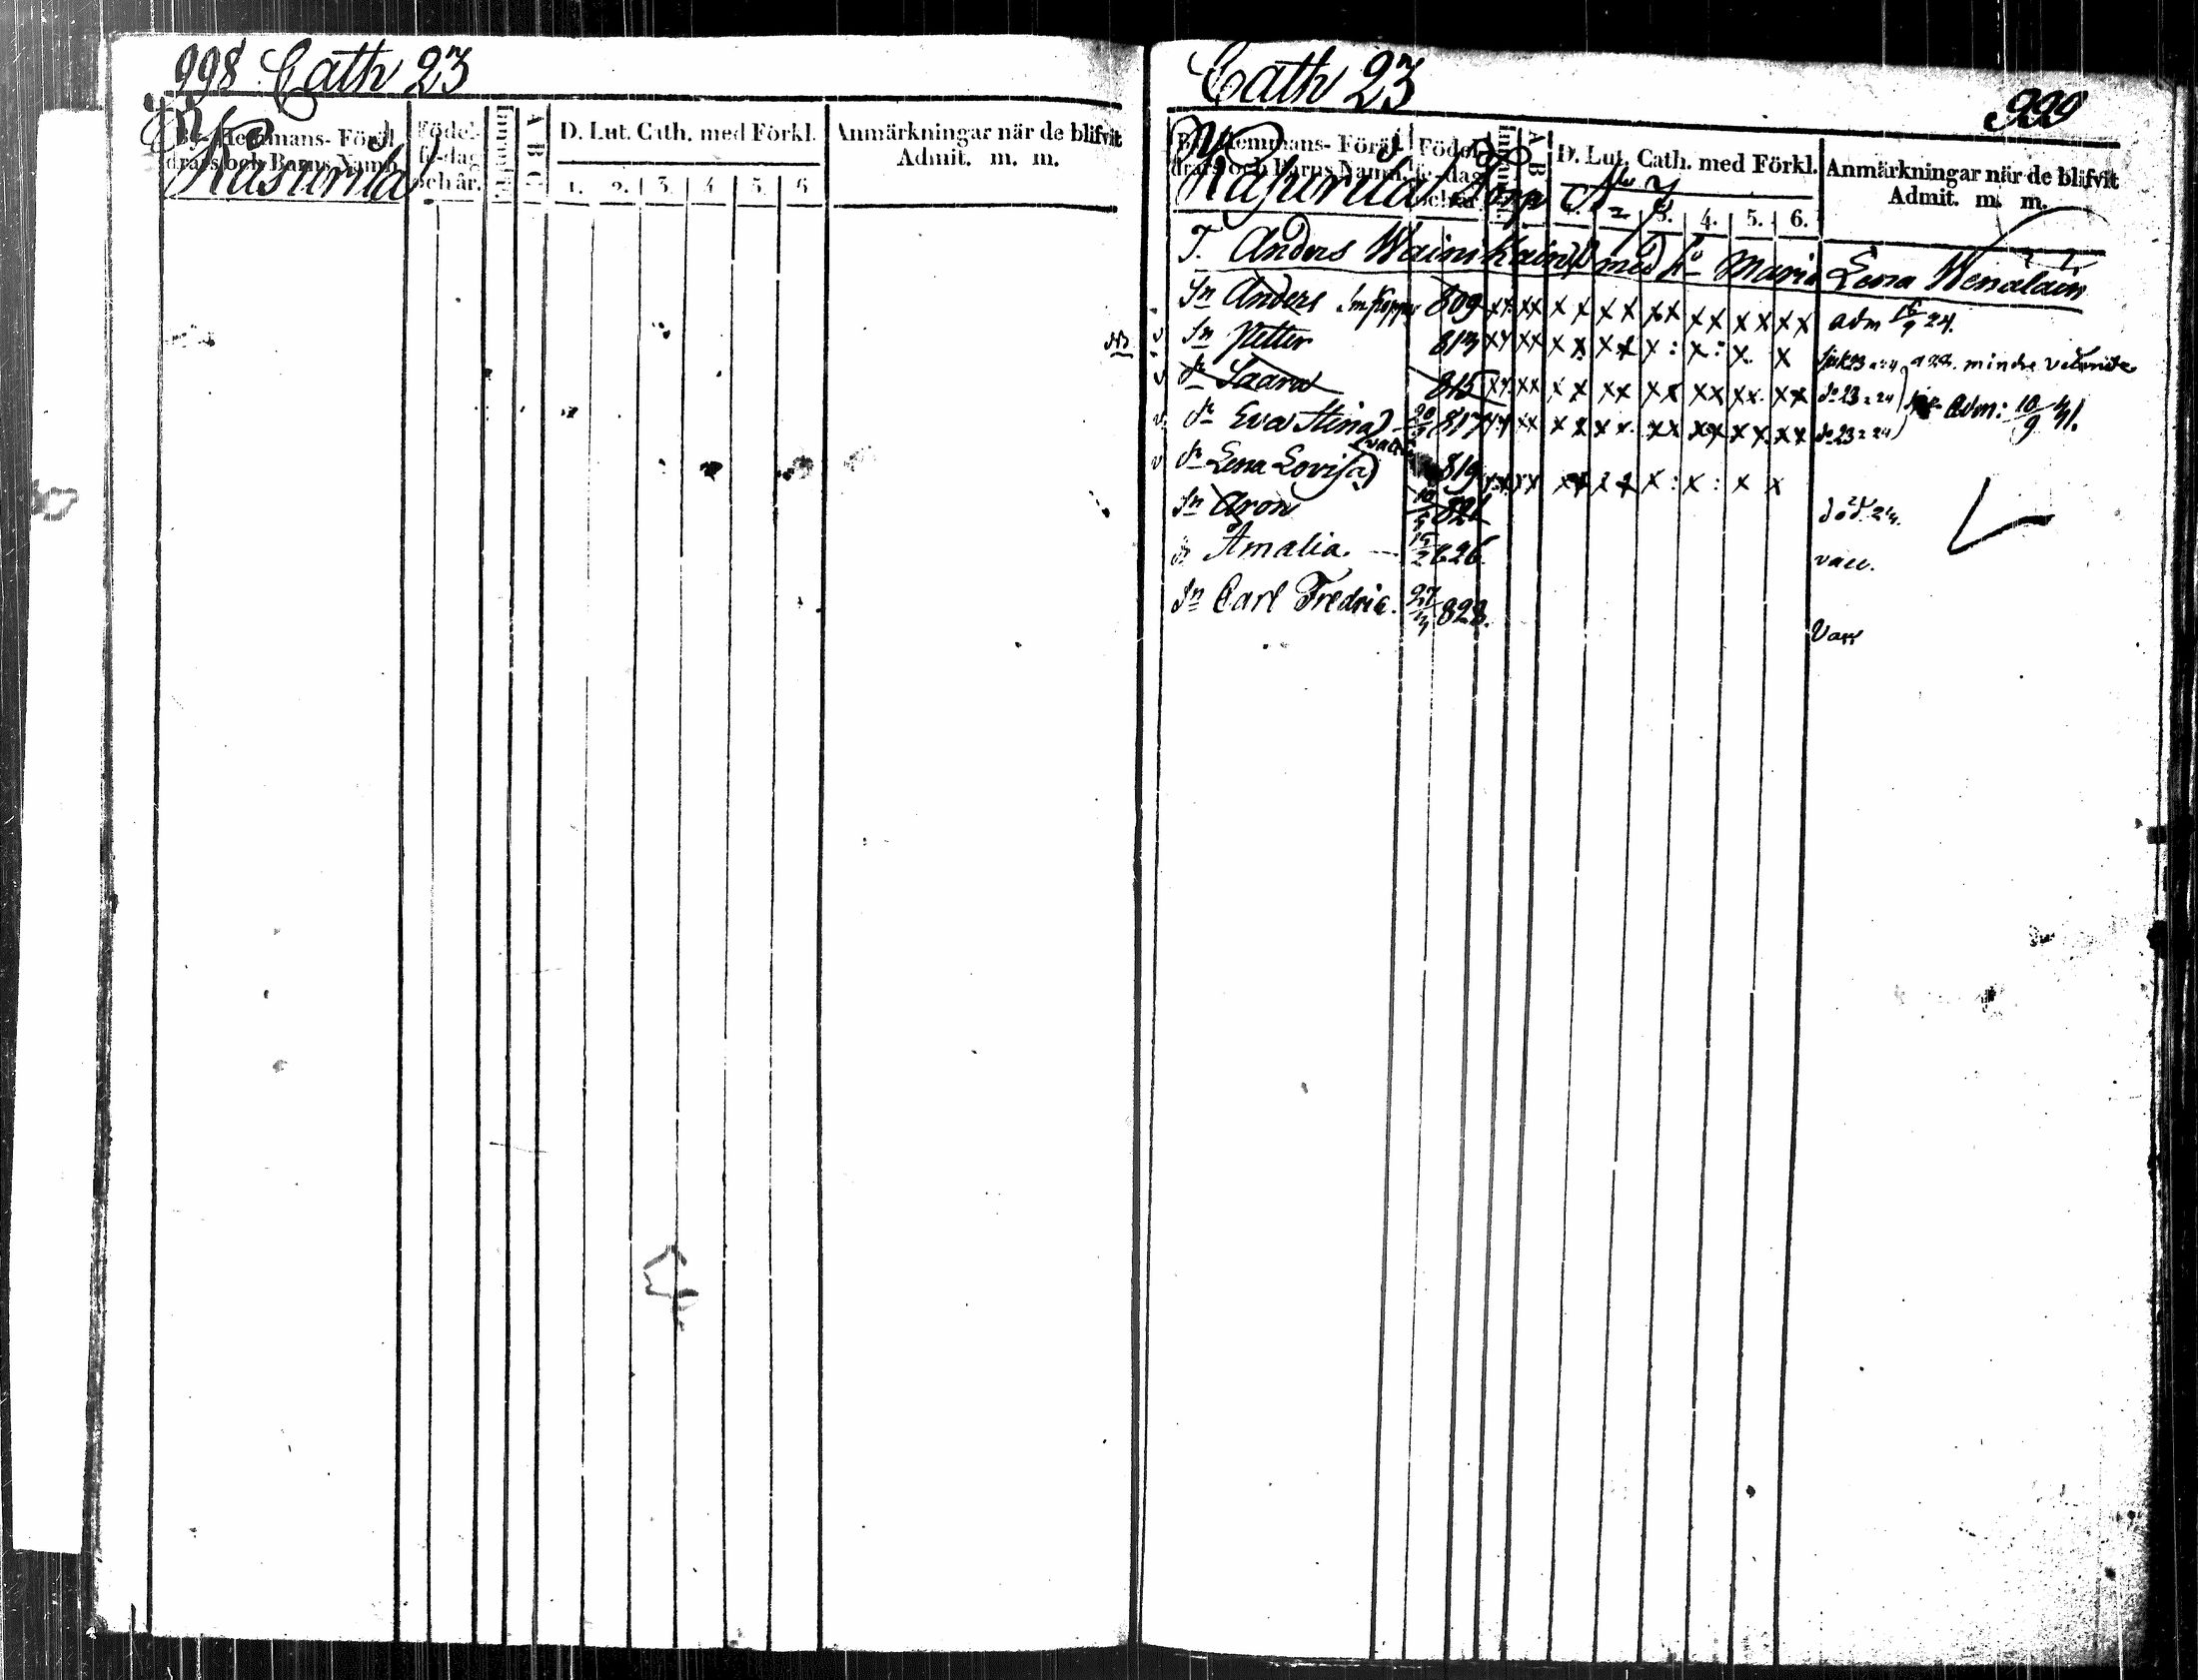 998 Cath 23
By- Hemmans- Föräl-
drars och Barns Namn.
Födel-
se-dag
och år.
A B C
D. Lut. Cath. med Förkl.
1. 2. 3. 4. 5. 6
Anmärkningar när de blifvit
Admit. m. m.
Kasurila
Cath 23
999
By- Hemmans- Föräl-
drars och Barns Namn.
Födel-
se-dag
A B
D. Lut. Cath. med Förkl.
3. 4. 5. 6.
Anmärkningar när de blifvit
Admit. m. m.
Kasurila Torp
T. Anders Wainikain med Maria Lena Wenäläin
Sn Anders 809 xx xx x x x x xx xx xx xx adm 24.
Sn Petter 813 xx xx x x x x x : x : x x mindre
dr Saara 815 xx xx x x xx xx xx xx xx do 23 a 24
dr Eva Stina 817 xx xx x x x x xx xx xx xx do 23 a 24 Adm: 10/9 41.
dr Lena Lovisa 819 x x x : x : x x
Sn Aron 821 död 24.
Amalia 15/2 826. vacc.
Sn Carl Fredric. 828. Vacc